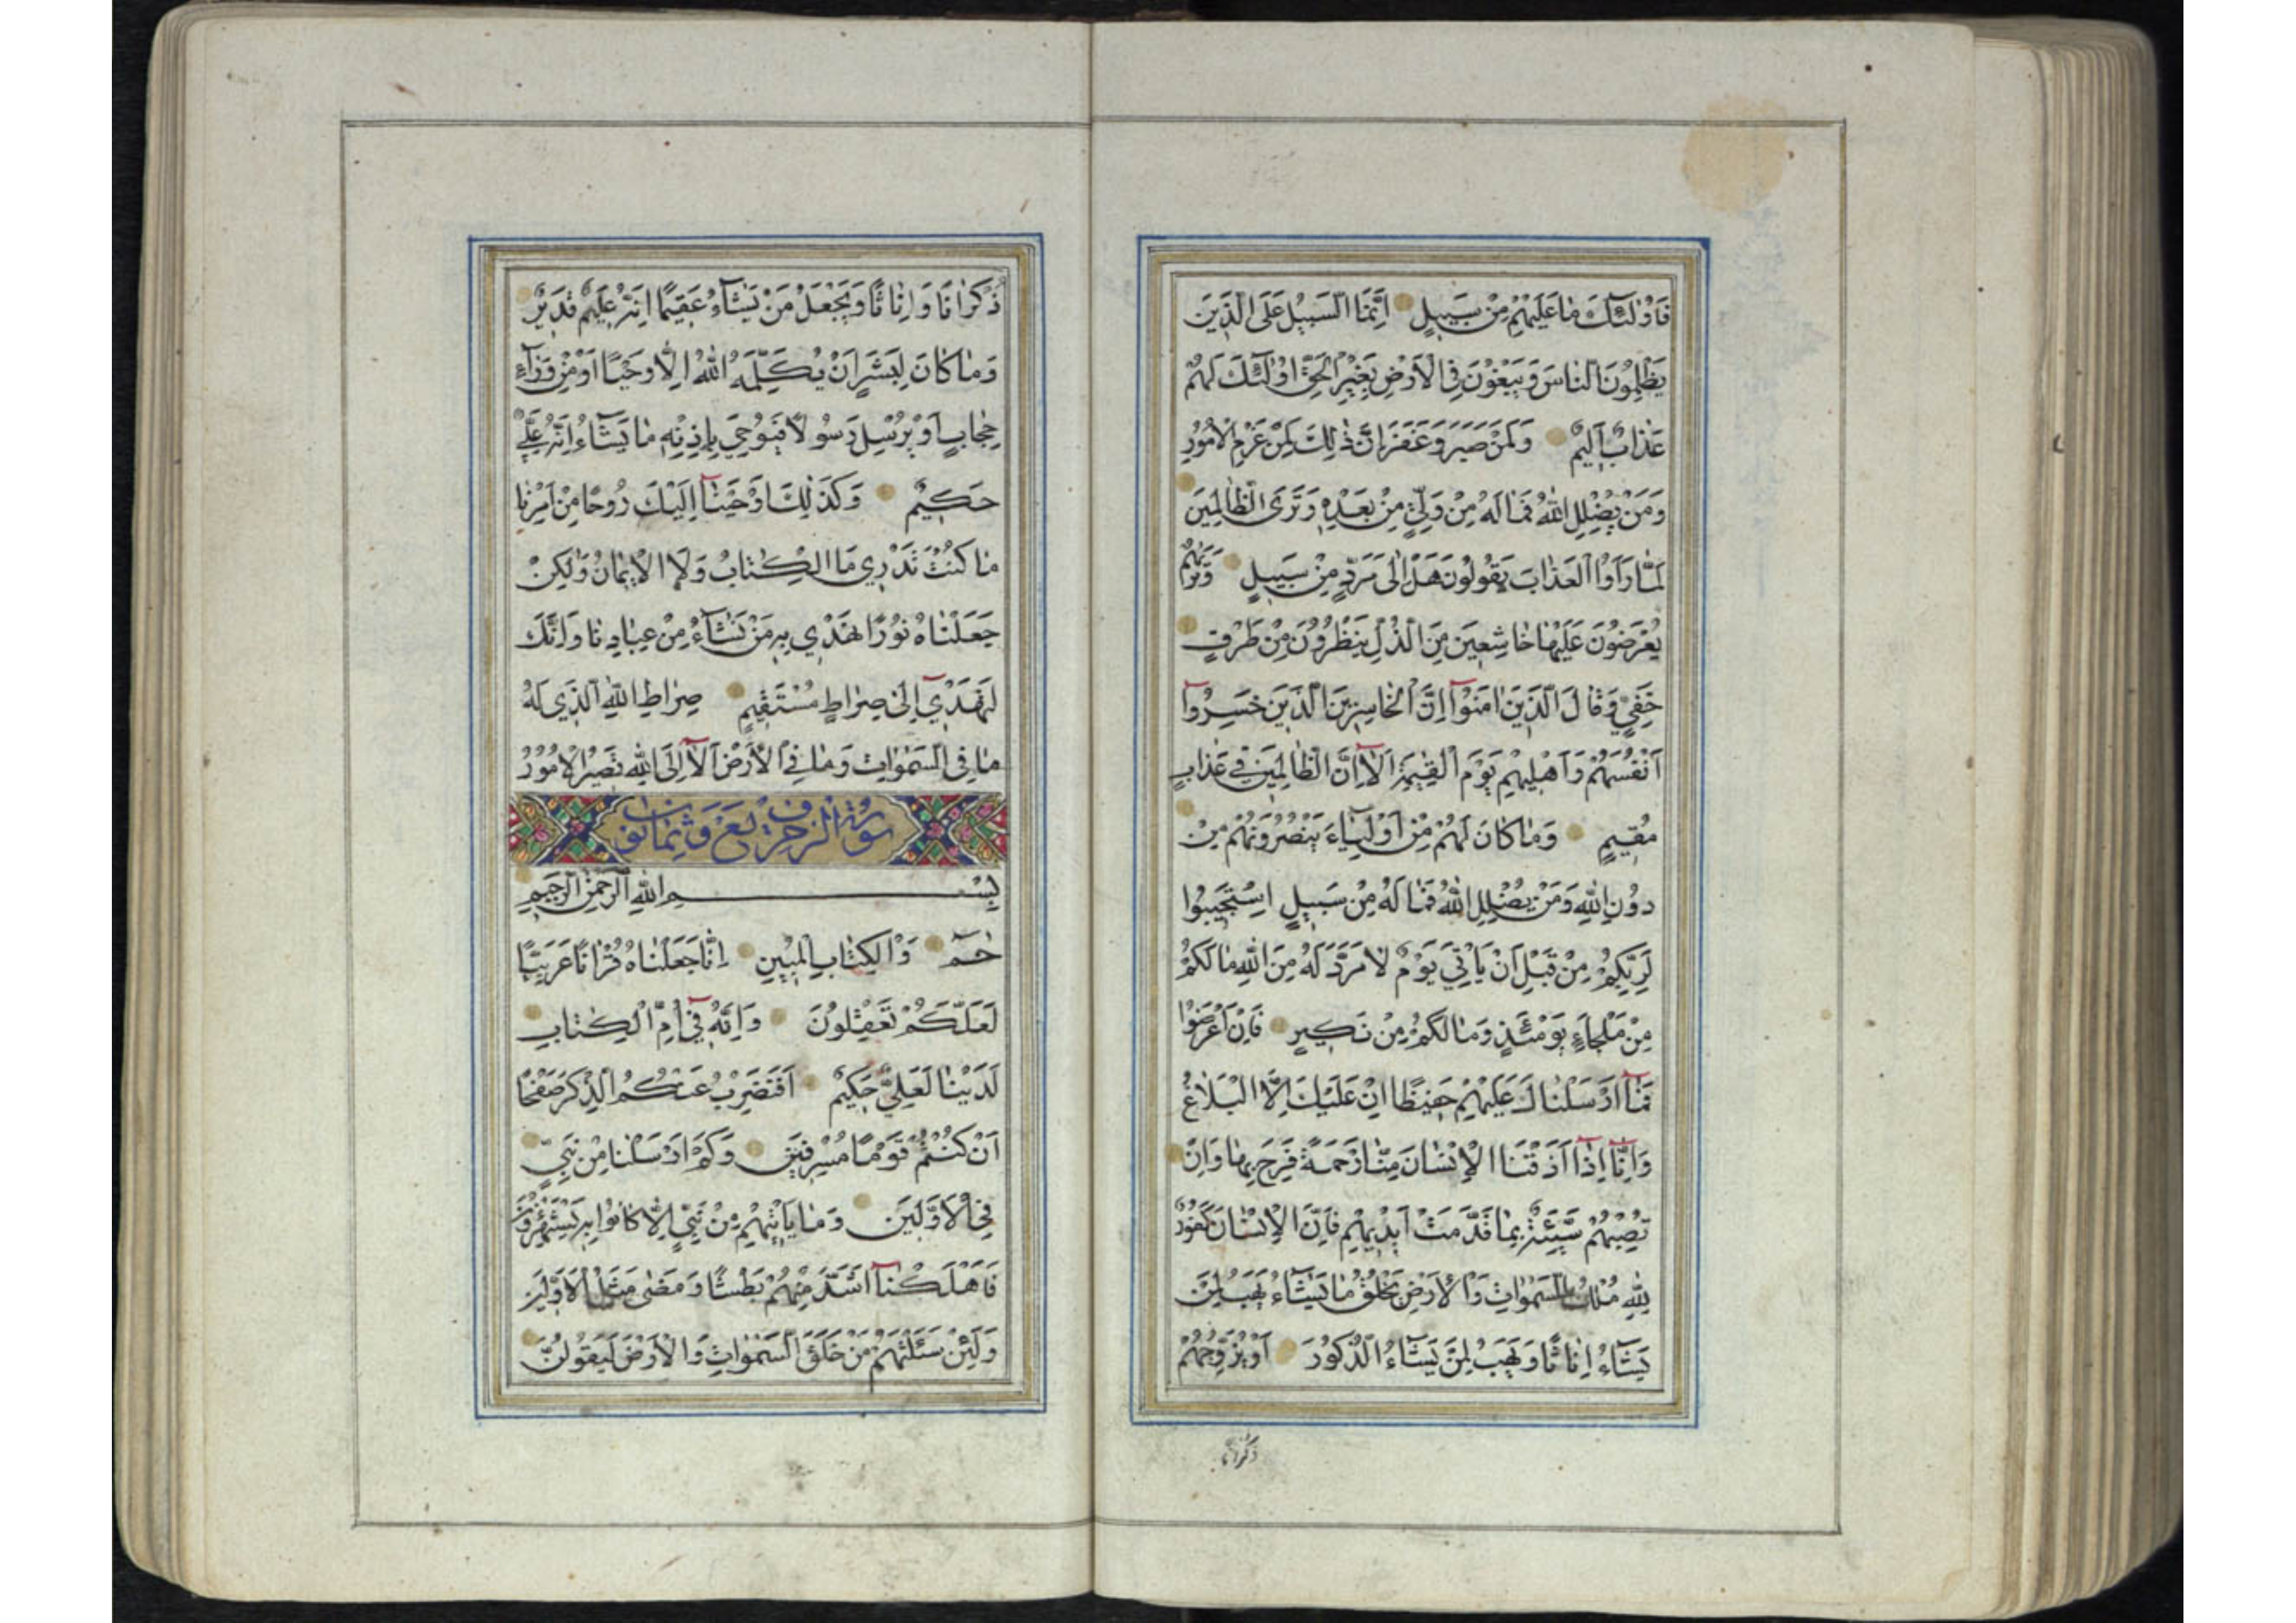 فَاُوْلٰئِكَ مَا عَلَيْهِمْ مِنْ سَبِيلٍ اِنَّمَا السَّبِيلُ عَلَى الَّذِينَ
يَظْلِمُونَ النَّاسَ وَيَبْغُونَ فِي الْاَرْضِ بِغَيْرِ الْحَقِّ اُوْلٰئِكَ لَهُمْ
عَذَابٌ اَلِيمٌ وَلَمَنْ صَبَرَ وَغَفَرَ اِنَّ ذٰلِكَ لَمِنْ عَزْمِ الْاُمُورِ
وَمَنْ يُضْلِلِ اللّٰهُ فَمَا لَهُ مِنْ وَلِيٍّ مِنْ بَعْدِهِ وَتَرَى الظَّالِمِينَ
لَمَّا رَاَوُا الْعَذَابَ يَقُولُونَ هَلْ اِلٰى مَرَدٍّ مِنْ سَبِيلٍ وَتَرٰيهُمْ
يُعْرَضُونَ عَلَيْهَا خَاشِعِينَ مِنَ الذُّلِّ يَنْظُرُونَ مِنْ طَرْفٍ
خَفِيٍّ وَقَالَ الَّذِينَ اٰمَنُوٓا اِنَّ الْخَاسِرِينَ الَّذِينَ خَسِرُوٓا
اَنْفُسَهُمْ وَاَهْلِيهِمْ يَوْمَ الْقِيٰمَةِ اَلَآ اِنَّ الظَّالِمِينَ فِي عَذَابٍ
مُقِيمٍ وَمَا كَانَ لَهُمْ مِنْ اَوْلِيَآءَ يَنْصُرُونَهُمْ مِنْ
دُونِ اللّٰهِ وَمَنْ يُضْلِلِ اللّٰهُ فَمَا لَهُ مِنْ سَبِيلٍ اسْتَجِيبُوا
لِرَبِّكُمْ مِنْ قَبْلِ اَنْ يَاْتِيَ يَوْمٌ لَا مَرَدَّ لَهُ مِنَ اللّٰهِ مَا لَكُمْ
مِنْ مَلْجَاءٍ يَوْمَئِذٍ وَمَا لَكُمْ مِنْ نَكِيرٍ فَاِنْ اَعْرَضُوا
فَمَآ اَرْسَلْنَاكَ عَلَيْهِمْ حَفِيظًا اِنْ عَلَيْكَ اِلَّا الْبَلَاغُ
وَاِنَّآ اِذَآ اَذَقْنَا الْاِنْسَانَ مِنَّا رَحْمَةً فَرِحَ بِهَا وَاِنْ
تُصِبْهُمْ سَيِّئَةٌ بِمَا قَدَّمَتْ اَيْدِيهِمْ فَاِنَّ الْاِنْسَانَ كَفُورٌ
لِلّٰهِ مُلْكُ السَّمٰوَاتِ وَالْاَرْضِ يَخْلُقُ مَا يَشَآءُ يَهَبُ لِمَنْ
يَشَآءُ اِنَاثًا وَيَهَبُ لِمَنْ يَشَآءُ الذُّكُورَ اَوْ يُزَوِّجُهُمْ
ذكرانا
ذُكْرَانًا وَاِنَاثًا وَيَجْعَلُ مَنْ يَشَآءُ عَقِيمًا اِنَّهُ عَلِيمٌ قَدِيرٌ
وَمَا كَانَ لِبَشَرٍ اَنْ يُكَلِّمَهُ اللّٰهُ اِلَّا وَحْيًا اَوْ مِنْ وَرَآءِ
حِجَابٍ اَوْ يُرْسِلَ رَسُولًا فَيُوحِيَ بِاِذْنِهِ مَا يَشَآءُ اِنَّهُ عَلِيٌّ
حَكِيمٌ وَكَذٰلِكَ اَوْحَيْنَآ اِلَيْكَ رُوحًا مِنْ اَمْرِنَا
مَا كُنْتَ تَدْرِي مَا الْكِتَابُ وَلَا الْاِيمَانُ وَلٰكِنْ
جَعَلْنَاهُ نُورًا نَهْدِي بِهِ مَنْ نَشَآءُ مِنْ عِبَادِنَا وَاِنَّكَ
لَتَهْدِيٓ اِلٰى صِرَاطٍ مُسْتَقِيمٍ صِرَاطِ اللّٰهِ الَّذِي لَهُ
مَا فِي السَّمٰوَاتِ وَمَا فِي الْاَرْضِ اَلَآ اِلَى اللّٰهِ تَصِيرُ الْاُمُورُ
سورة الزخرف تسع وثمانون
بِسْمِ اللّٰهِ الرَّحْمٰنِ الرَّحِيمِ
حٰمٓ وَالْكِتَابِ الْمُبِينِ اِنَّا جَعَلْنَاهُ قُرْاٰنًا عَرَبِيًّا
لَعَلَّكُمْ تَعْقِلُونَ وَاِنَّهُ فِيٓ اُمِّ الْكِتَابِ
لَدَيْنَا لَعَلِيٌّ حَكِيمٌ اَفَنَضْرِبُ عَنْكُمُ الذِّكْرَ صَفْحًا
اَنْ كُنْتُمْ قَوْمًا مُسْرِفِينَ وَكَمْ اَرْسَلْنَا مِنْ نَبِيٍّ
فِي الْاَوَّلِينَ وَمَا يَاْتِيهِمْ مِنْ نَبِيٍّ اِلَّا كَانُوا بِهِ يَسْتَهْزِؤُنَ
فَاَهْلَكْنَآ اَشَدَّ مِنْهُمْ بَطْشًا وَمَضٰى مَثَلُ الْاَوَّلِينَ
وَلَئِنْ سَئَلْتَهُمْ مَنْ خَلَقَ السَّمٰوَاتِ وَالْاَرْضَ لَيَقُولُنَّ